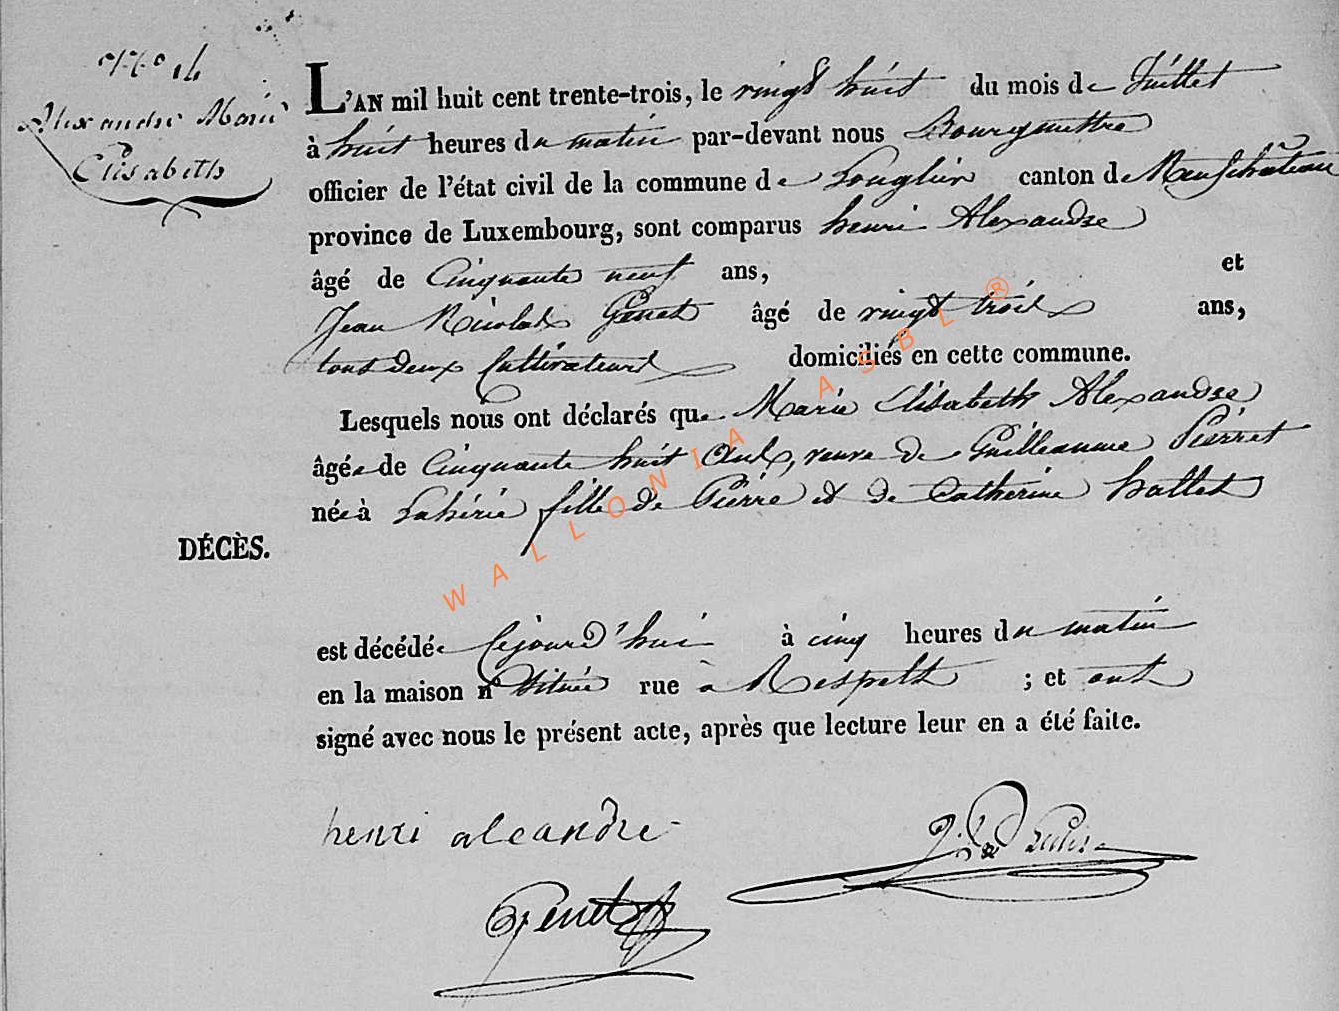 N.o 14
Alexandre Marie
Elisabeth
L'AN mil huit cent trente-trois, le vingt huit du mois de Juillet
à huit heures du matin par-devant nous Bourgmettre
officier de l'état civil de la commune de Longlier canton de Neufchateau
province de Luxembourg, sont comparus henri Alexandre
âgé de Cinquante neuf ans, et
Jean Nicolas Genet âgé de vingt trois ans,
tous deux Cultivateurs domiciliés en cette commune.
Lesquels nous ont déclarés que Marie Elisabeth Alexandre
âgée de Cinquante huit Ans, veuve de Guilleaume Pierret
née à Lahérie fille de Pierre et de Catherine hallet
DÉCÈS.
est décédée Cejourd'hui à cinq heures du matin
en la maison n° Située rue à Respelt ; et ont
signé avec nous le présent acte, après que lecture leur en a été faite.
henri aleandre
Genet
WALLONIA ASBL ®